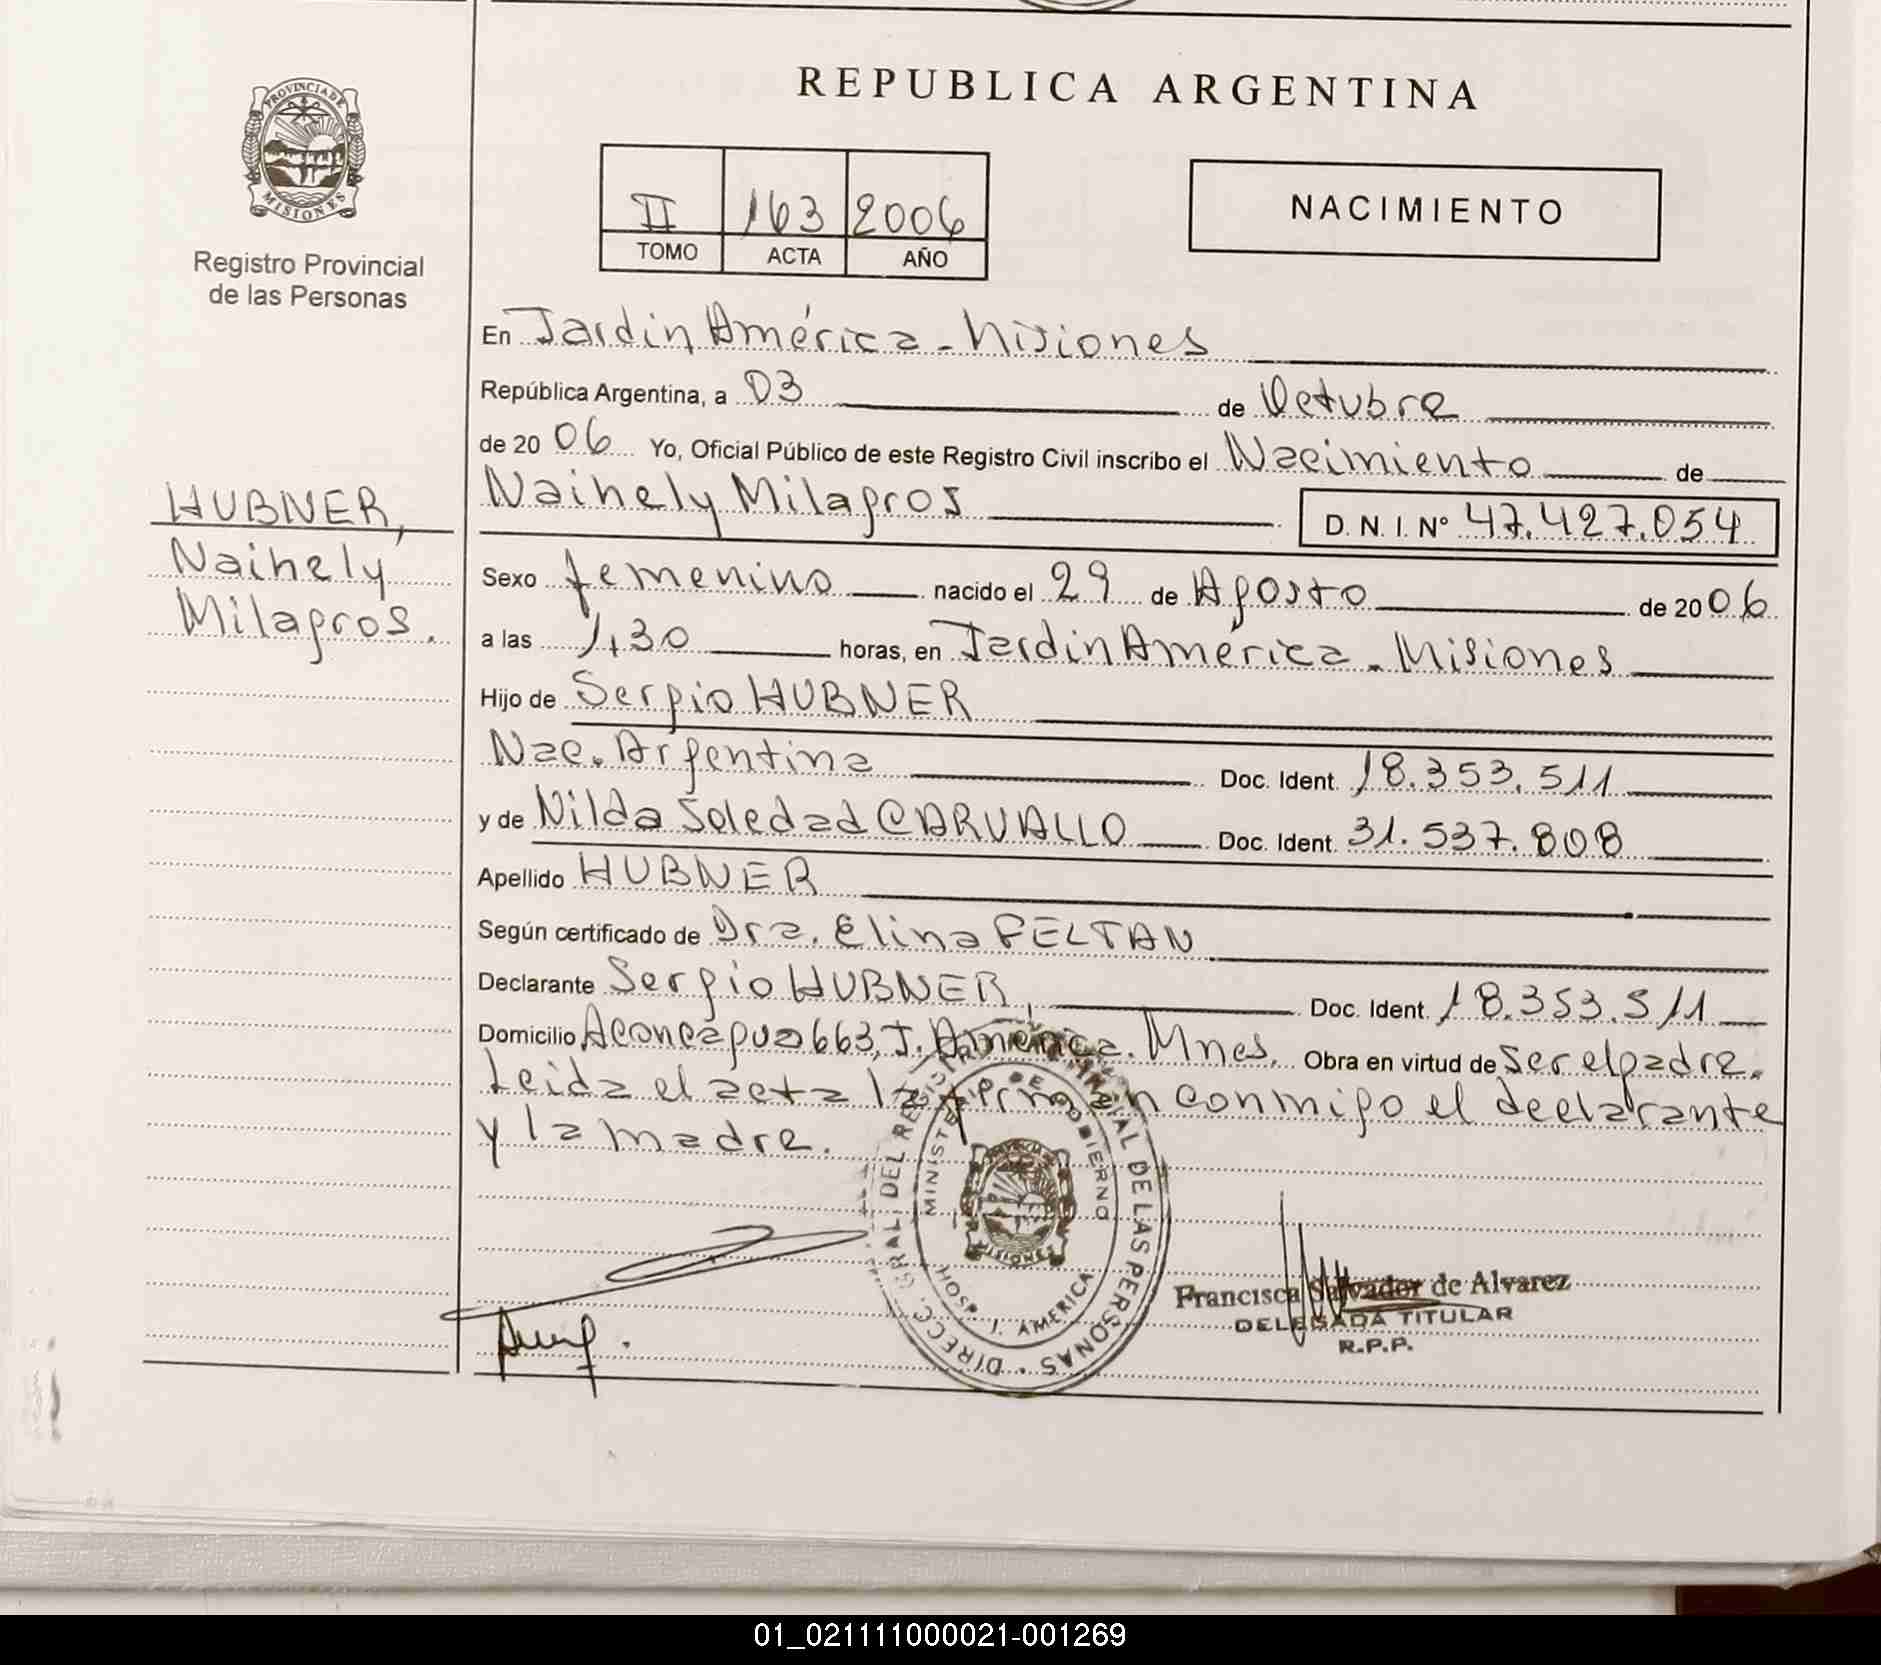 REPUBLICA ARGENTINA
PROVINCIA DE
MISIONES
Registro Provincial
de las Personas
II 163 2006
TOMO ACTA AÑO
NACIMIENTO
En Jardin América - Misiones
República Argentina, a 03 de Octubre
de 20 06 Yo, Oficial Público de este Registro Civil inscribo el Nacimiento de
HUBNER,
Naihely
Milagros.
Naihely Milagros
D. N. I. Nº 47.427.054
Sexo femenino nacido el 29 de Agosto de 20 06
a las 1,30 horas, en Jardin América - Misiones
Hijo de Sergio HUBNER
Nac. Argentina Doc. Ident. 18.353.511
y de Nilda Soledad CARVALLO Doc. Ident. 31.537.808
Apellido HUBNER
Según certificado de Dra. Elina FELTAN
Declarante Sergio HUBNER, Doc. Ident. 18.353.511
Domicilio Aconcagua 663, J. América. Mnes. Obra en virtud de ser el padre.
Leida el acta la firman conmigo el declarante
y la madre.
DIRECC. GRAL. DEL REGISTRO PROVINCIAL DE LAS PERSONAS
MINISTERIO DE GOBIERNO
MISIONES
HOSP. J. AMERICA
Francisca Salvador de Alvarez
DELEGADA TITULAR
R.P.P.
01_021111000021-001269